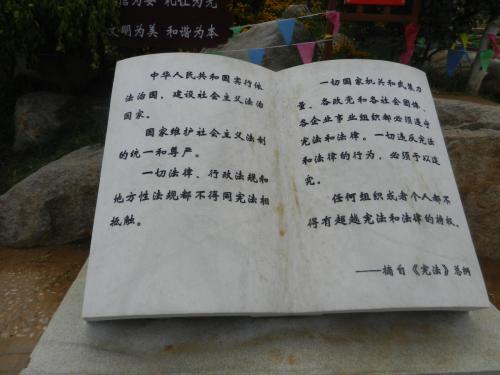 信为要 礼让为先
文明为美 和谐为本
中华人民共和国实行依
法治国，建设社会主义法治
国家。
国家维护社会主义法制
的统一和尊严。
一切法律、行政法规和
地方性法规都不得同宪法相
抵触。
一切国家机关和武装力
量、各政党和各社会团体、
各企业事业组织都必须遵守
宪法和法律。一切违反宪法
和法律的行为，必须予以追
究。
任何组织或者个人都不
得有超越宪法和法律的特权。
——摘自《宪法》总纲